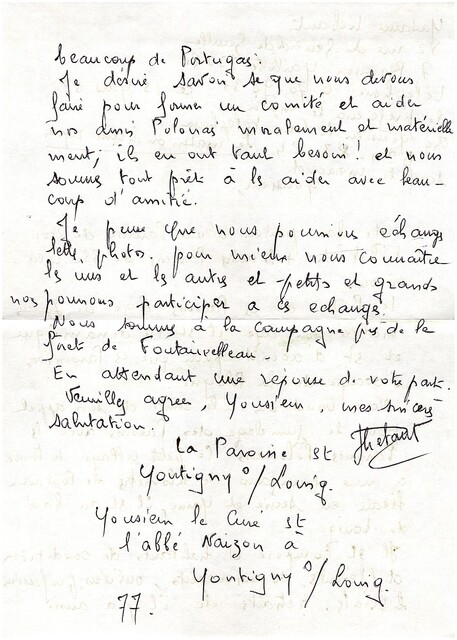 beaucoup de Portugais.
Je désire savoir se que nous devons
faire pour former un comité et aider
nos amis Polonais moralement et matérielle
ment, ils en ont tant besoin! et nous
sommes tout prêt à ls aider avec beau-
coup d'amitié.
Je pense que nous pourrions échanger
lettres, photos. pour mieux nous connaître
ls uns et ls autres et petits et grands
nos pourrons participer a cs echanges.
Nous sommes à la campagne près de la
forêt de Fontainebleau.
En attendant une réponse de votre part.
Veuillez agréer, Monsieur, mes sincères
salutation.
La Paroisse st
Montigny s/ Loing.
Monsieur le Curé st
l'abbé Naizon à
Montigny s/ Loing.
77.